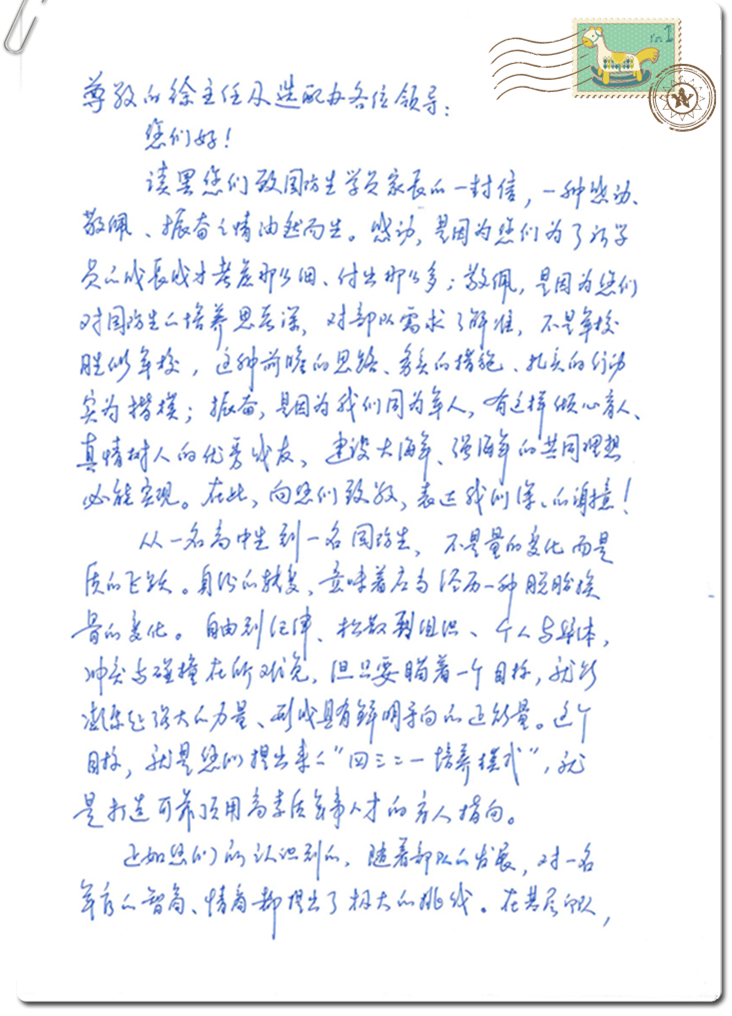 尊敬的徐主任及选配办各位领导：
您们好！
读罢您们致国防生学员家长的一封信，一种感动、
敬佩、振奋之情油然而生。感动，是因为您们为了让学
员的成长成才考虑那么细、付出那么多；敬佩，是因为您们
对国防生的培养思虑深，对部队需求了解准，不是军校
胜似军校，这种前瞻的思路、务实的措施、扎实的行动
实为楷模；振奋，是因为我们同为军人，有这样倾心育人、
真情树人的优秀战友，建设大海军、强海军的共同理想
必能实现。在此，向您们致敬，表达我们深深的谢意！
从一名高中生到一名国防生，不是量的变化而是
质的飞跃。身份的转变，意味着应当经历一种脱胎换
骨的变化。自由到纪律、松散到组织、个人与集体，
冲突与碰撞在所难免，但只要瞄着一个目标，就能
凝聚起强大的力量、形成具有鲜明导向的正能量。这个
目标，就是您们提出来的“四三二一培养模式”，就
是打造可靠顶用高素质军事人才的育人指向。
正如您们所认识到的，随着部队的发展，对一名
军官的智商、情商都提出了极大的挑战。在基层部队，